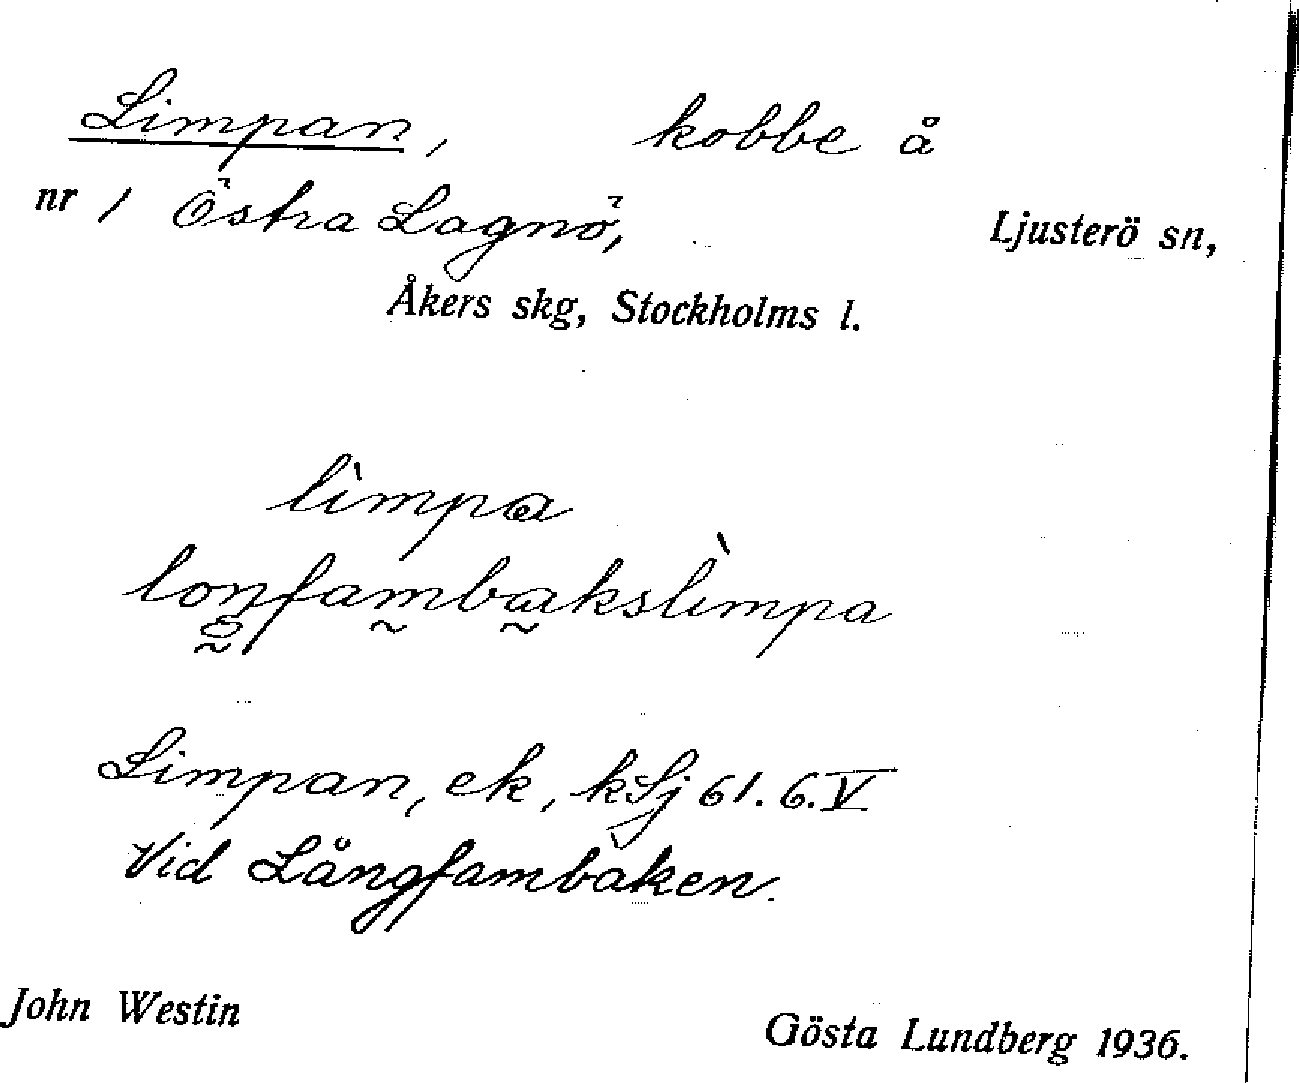 Limpan, kobbe å
nr 1 Östra Lagnö, Ljusterö sn,
Åkers skg, Stockholms l.
lìmpa
loŋfambakslìmpa
Limpan, ek, kSj 61. 6. V
Vid Långfambaken.
John Westin
Gösta Lundberg 1936.